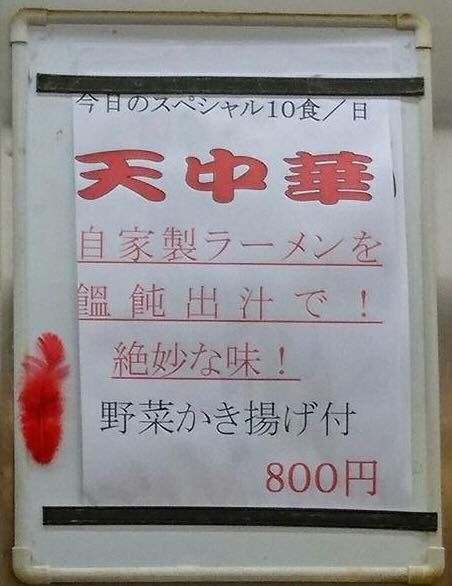 今日のスペシャル10食／日
天中華
自家製ラーメンを
饂飩出汁で！
絶妙な味！
野菜かき揚げ付
800円